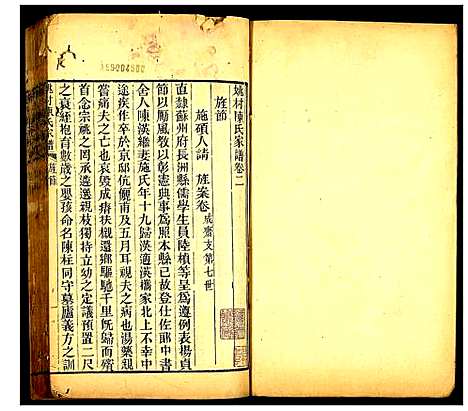 姚村陳氏家譜卷二
旌節
施碩人請 旌案卷 成齋支第七世
直隸蘇州府長洲縣儒學生員陸楨等呈爲遵例表揚貞
節以勵風教以彰憲典事爲照本縣已故登仕佐郎中書
舍人陳漢繼妻施氏年十九歸漢適漢攜家北上不幸中
途疾作卒於京邸伉儷甫及五月耳視夫之病也湯藥親
嘗痛夫之亡也哀毀成瘠扶櫬還鄉驅馳千里旣歸而殯
首念宗祧之罔承遴選親枝獨持立幼之定議預置同穴
之哀絰抱育數歲之嬰孩命名陳柱同守墓廬義方之訓
姚村陳氏家譜 旌節